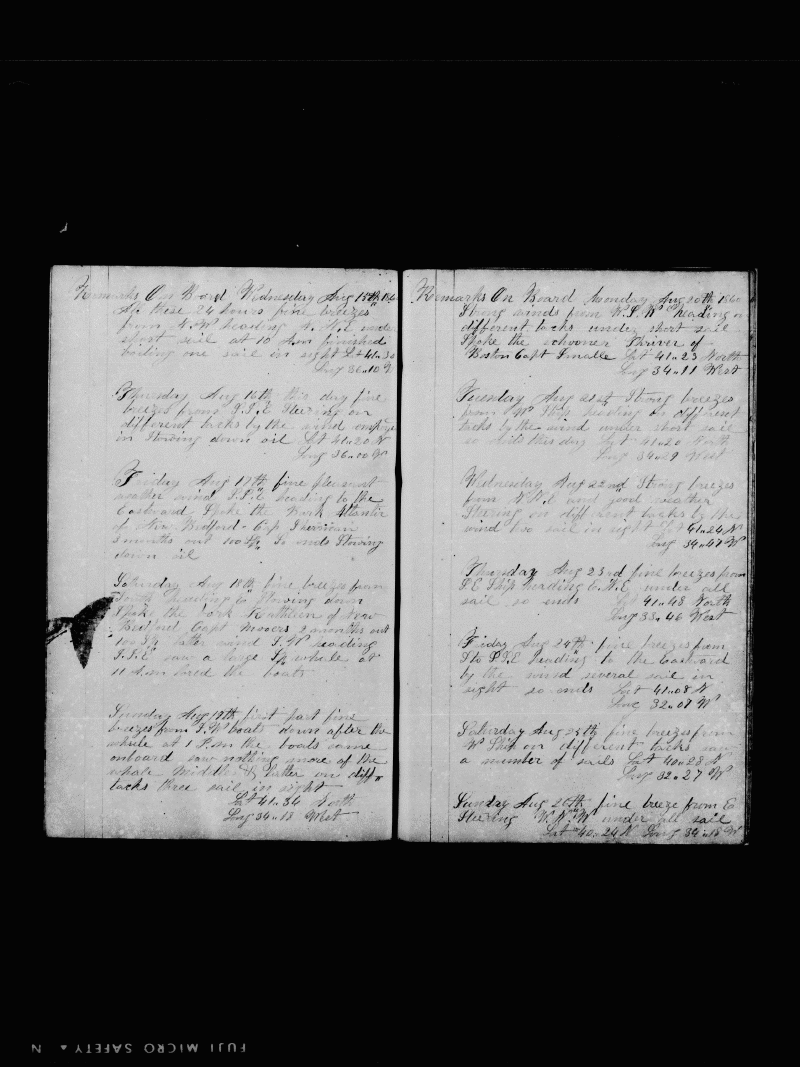 Remarks On Board Wednesday Aug 15th 186
these 24 hours fine breezes
from N.W heading N.N.E under
short sail at 10 A.m finished
boiling one sail in sight Lat 41..3
Long 36..10 W
Thursday Aug 16th this day fine
breezes from S.S.E Steering on
different tacks by the wind
in Stowing down oil Lat 41..20 N
Long 36..00 W
Friday Aug 17th fine pleasant
weather wind S.S.E heading to the
Eastward Spoke the Bark Atlantic
of New Bedford Cap
months out So ends Stowing
down oil
Saturday Aug 18th fine breezes from
South heading E Stowing down
Spoke the bark Kathleen of New
Bedford Capt 2 months out
latter wind S.W heading
S.S.E saw a large Sp whale at
11 A.m lored the boats
Sunday Aug 19th first part fine
breezes from S.W boats down after the
whale at 1 P.m the boats came
onboard saw nothing more of the
whale Middle & Latter on diff
tacks three sail in sight
Lat 41..34 North
Long 34..13 West
Remarks On Board Monday Aug 20th 1860
Strong winds from W.S.W heading on
different tacks under short sail
Spoke the schooner of
Boston Capt Smalle Lat 41..23 North
Long 34..11 West
Tuesday Aug 21st Strong breezes
from W Ship heading on different
tacks by the wind under short sail
so ends this day Lat 41..20 North
Long 34..29 West
Wednesday Aug 22nd Strong breezes
from and good weather
Steering on different tacks by the
wind two sail in sight Lat 41..24 N
Long 34..47 W
Thursday Aug 23rd fine breezes from
S.E Ship heading E.N.E under all
sail so ends Lat 41..48 North
Long 33..46 West
Friday Aug 24th fine breezes from
S to S.S.E heading to the Eastward
by the wind several sail in
sight so ends Lat 41..08 N
Long 32..07 W
Saturday Aug 25th fine breezes from
W Ship on different tacks saw
a number of sails Lat 40..28 N
Long 32..27 W
Sunday Aug 26th fine breeze from E
Steering W.N.W under all sail
Lat 40..24 N Long 34..18 W
FUJI MICRO SAFETY ▲ N